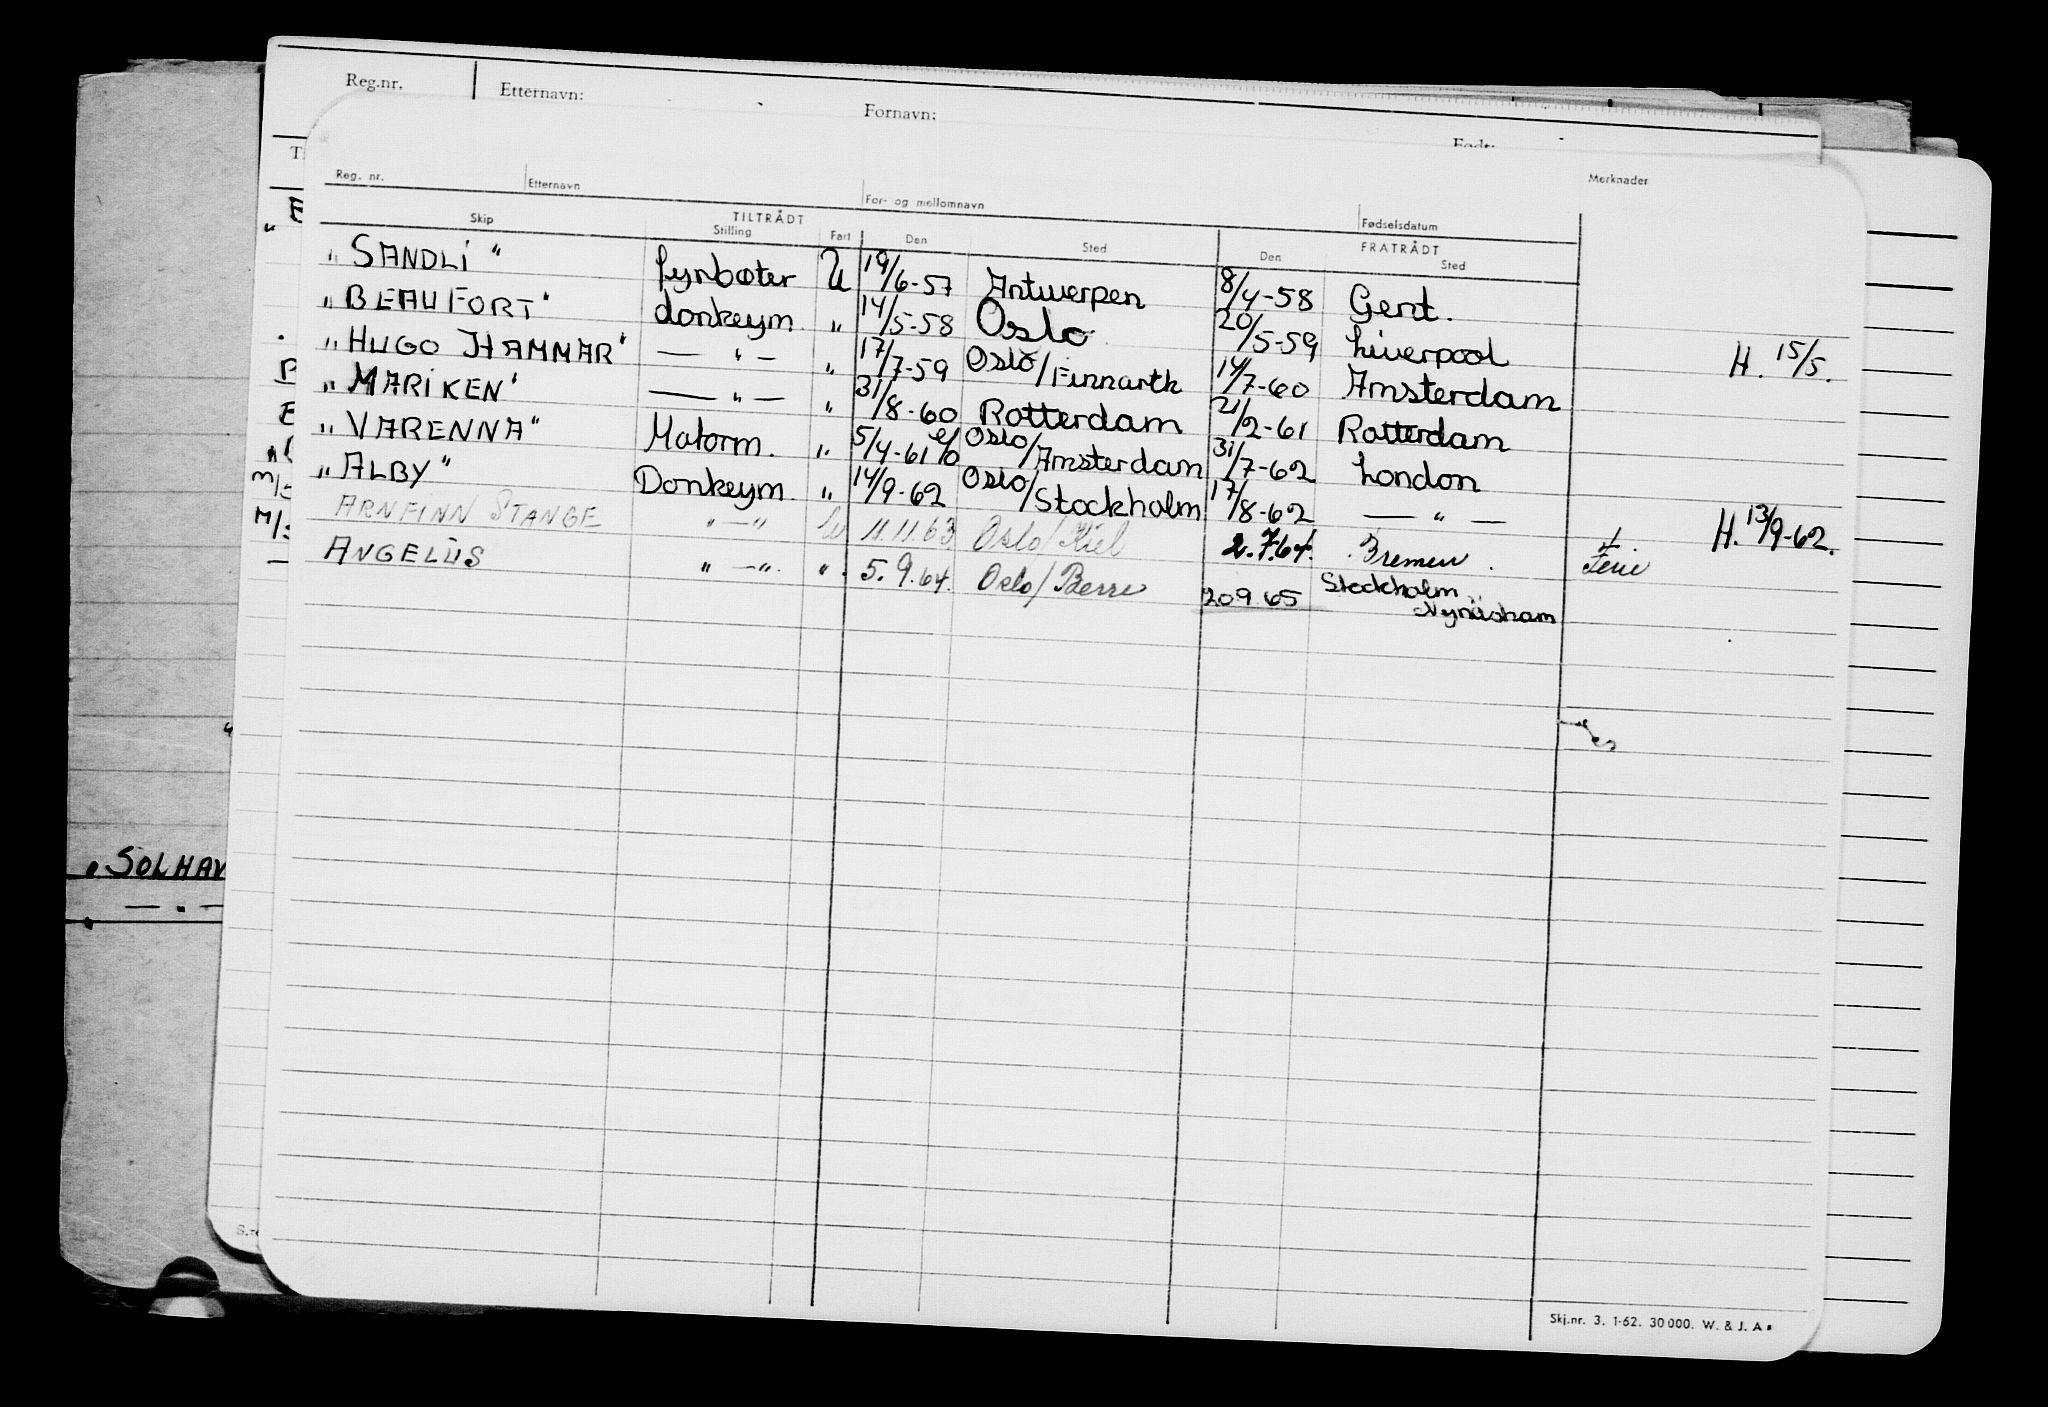 Reg.nr. Etternavn: Fornavn:
Reg. nr. Etternavn For- og mellomnavn Fødselsdatum Merknader
TILTRÅDT FRATRÅDT
Skip Stilling Fart Den Sted Den Sted
"SANDLI" fyrbøter U 19/6-57 Antwerpen 8/4-58 Gent.
"BEAUFORT" donkeym. " 14/5-58 Oslo 20/5-59 Liverpool H. 15/5.
"HUGO HAMMAR" — " — " 17/7-59 Oslo/Finnarth 14/7-60 Amsterdam
"MARIKEN" — " — " 31/8-60 Rotterdam 21/2-61 Rotterdam
"VARENNA" Motorm. " 5/4-61 Oslo/Amsterdam 31/7-62 London
"ALBY" Donkeym. " 14/9-62 Oslo/Stockholm 17/8-62 — " — H. 13/9-62.
ARNFINN STANGE " — " 11.11.63 Oslo/Kiel 2.7.64. Bremen. Ferie
ANGELUS " — ". ". 5.9.64. Oslo/Berre 20.9.65 Stockholm
Nynäsham
"SOLHAV
— " —
Skj.nr. 3. 1-62. 30 000. W. & J. A.